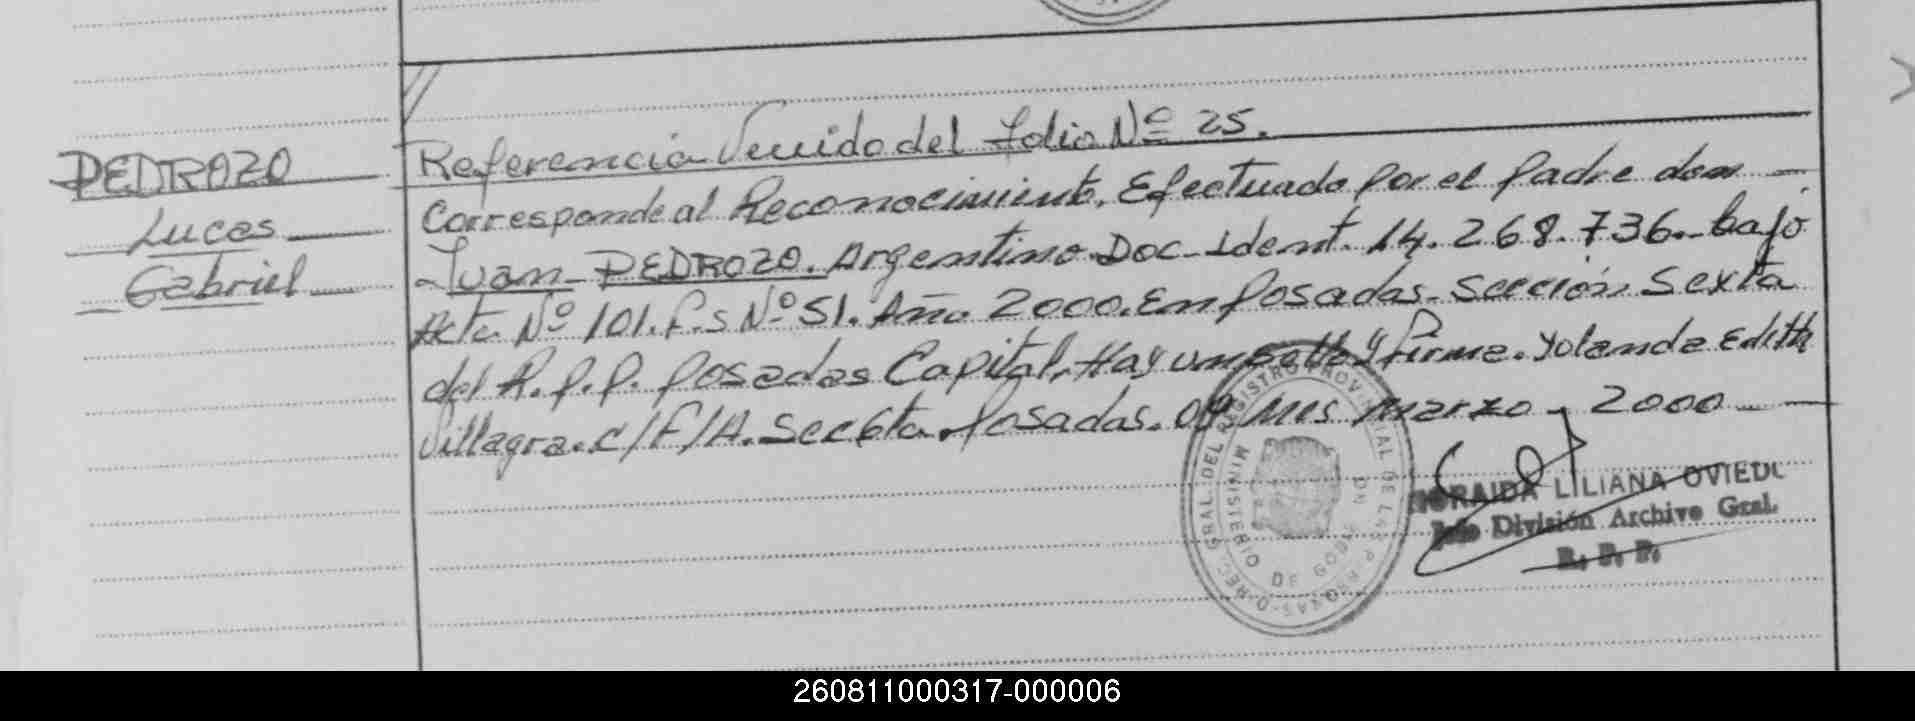 PEDROZO
Lucas
Gabriel
Referencia Venido del folio Nº 25.
Corresponde al Reconocimiento, Efectuado por el padre don
Juan PEDROZO. Argentino. Doc. Ident. 14.268.736. bajo
Acta Nº 101. F.s Nº 51. Año 2000. En Posadas - Sección Sexta
del R.P.P. Posadas Capital, Hay un sello y firma. Yolanda Edith
Villagra. c/F/A. Sec 6ta. Posadas. 09 Mes Marzo - 2000
REC. GRAL. DEL REGISTRO PROVINCIAL DE LAS P
MINISTERIO DE GOB
LILIANA OVIEDO
Jefe División Archivo Gral.
R. P. P.
260811000317-000006